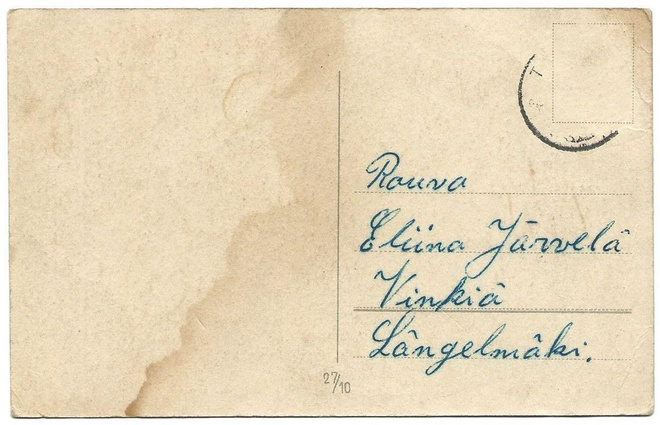 Rouva
Eliina Järvelä
Vinkiä
Längelmäki.
27/10